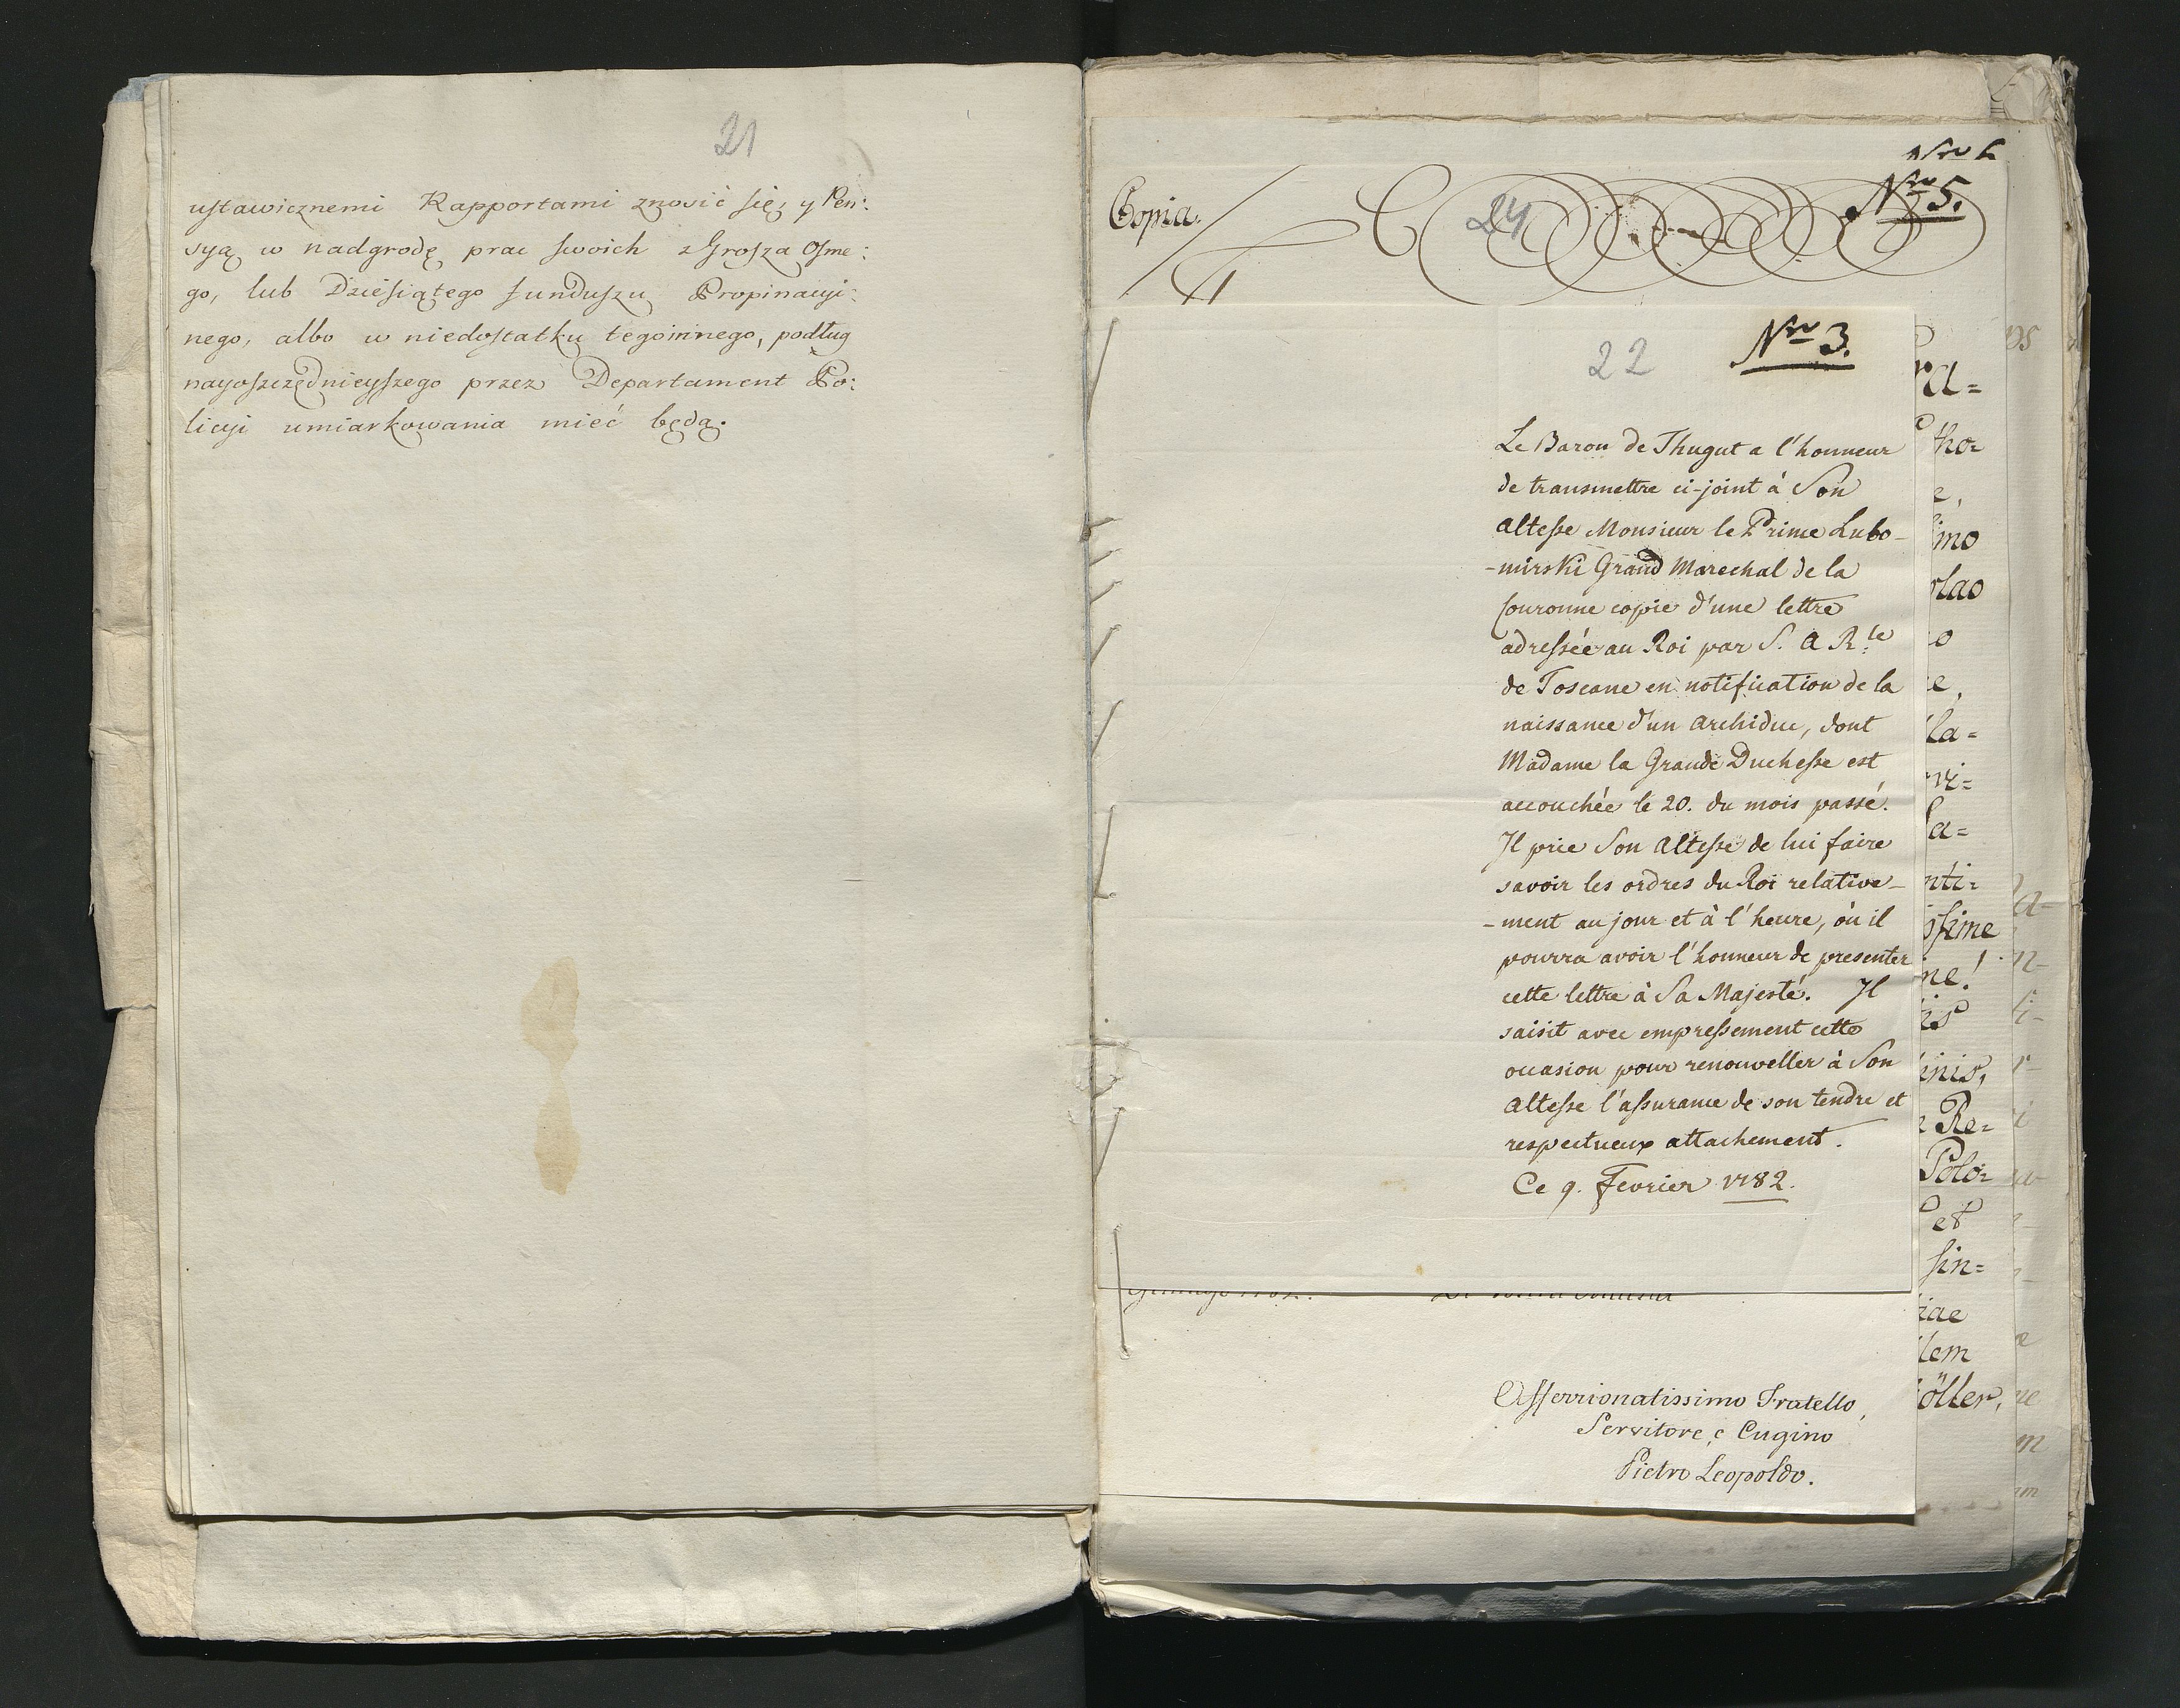 21
ustawicznemi Rapportami znosić się, y Pen:
syą w nadgrodę prac swoich z Grosza Osme:
go, lub Dziesiątego funduszu Propinacyi:
nego, albo w niedostatku tego innego, podług
nayoszczędnieyszego przez Departament Po:
licyi umiarkowania mieć będą.
Copia.
24
Nro 5.
22
Nro 3.
Le Baron de Thugut a l'honneur
de transmettre ci-joint à Son
Altesse Monsieur le Prince Lubo-
-mirski Grand Marechal de la
Couronne copie d'une lettre
adressée au Roi par S. A R.le
de Toscane en notification de la
naissance d'un Archiduc, dont
Madame la Grande Duchesse est
accouchée le 20. du mois passé.
Il prie Son Altesse de lui faire
savoir les ordres du Roi relative-
-ment au jour et à l'heure, où il
pourra avoir l'honneur de presenter
cette lettre à Sa Majesté. Il
saisit avec empressement cette
occasion pour renouveller à Son
Altesse l'assurance de son tendre et
respectueux attachement.
Ce 9. Fevrier 1782.
Affezzionatissimo Fratello,
Servitore, e Cugino
Pietro Leopoldo.
ra=
tho=
e,
imo
slao
o
e,
la=
vi=
a=
nti=
ssime
ne!
is
inis,
e Re=
Polo=
et
sin=
iae
lem
öller,